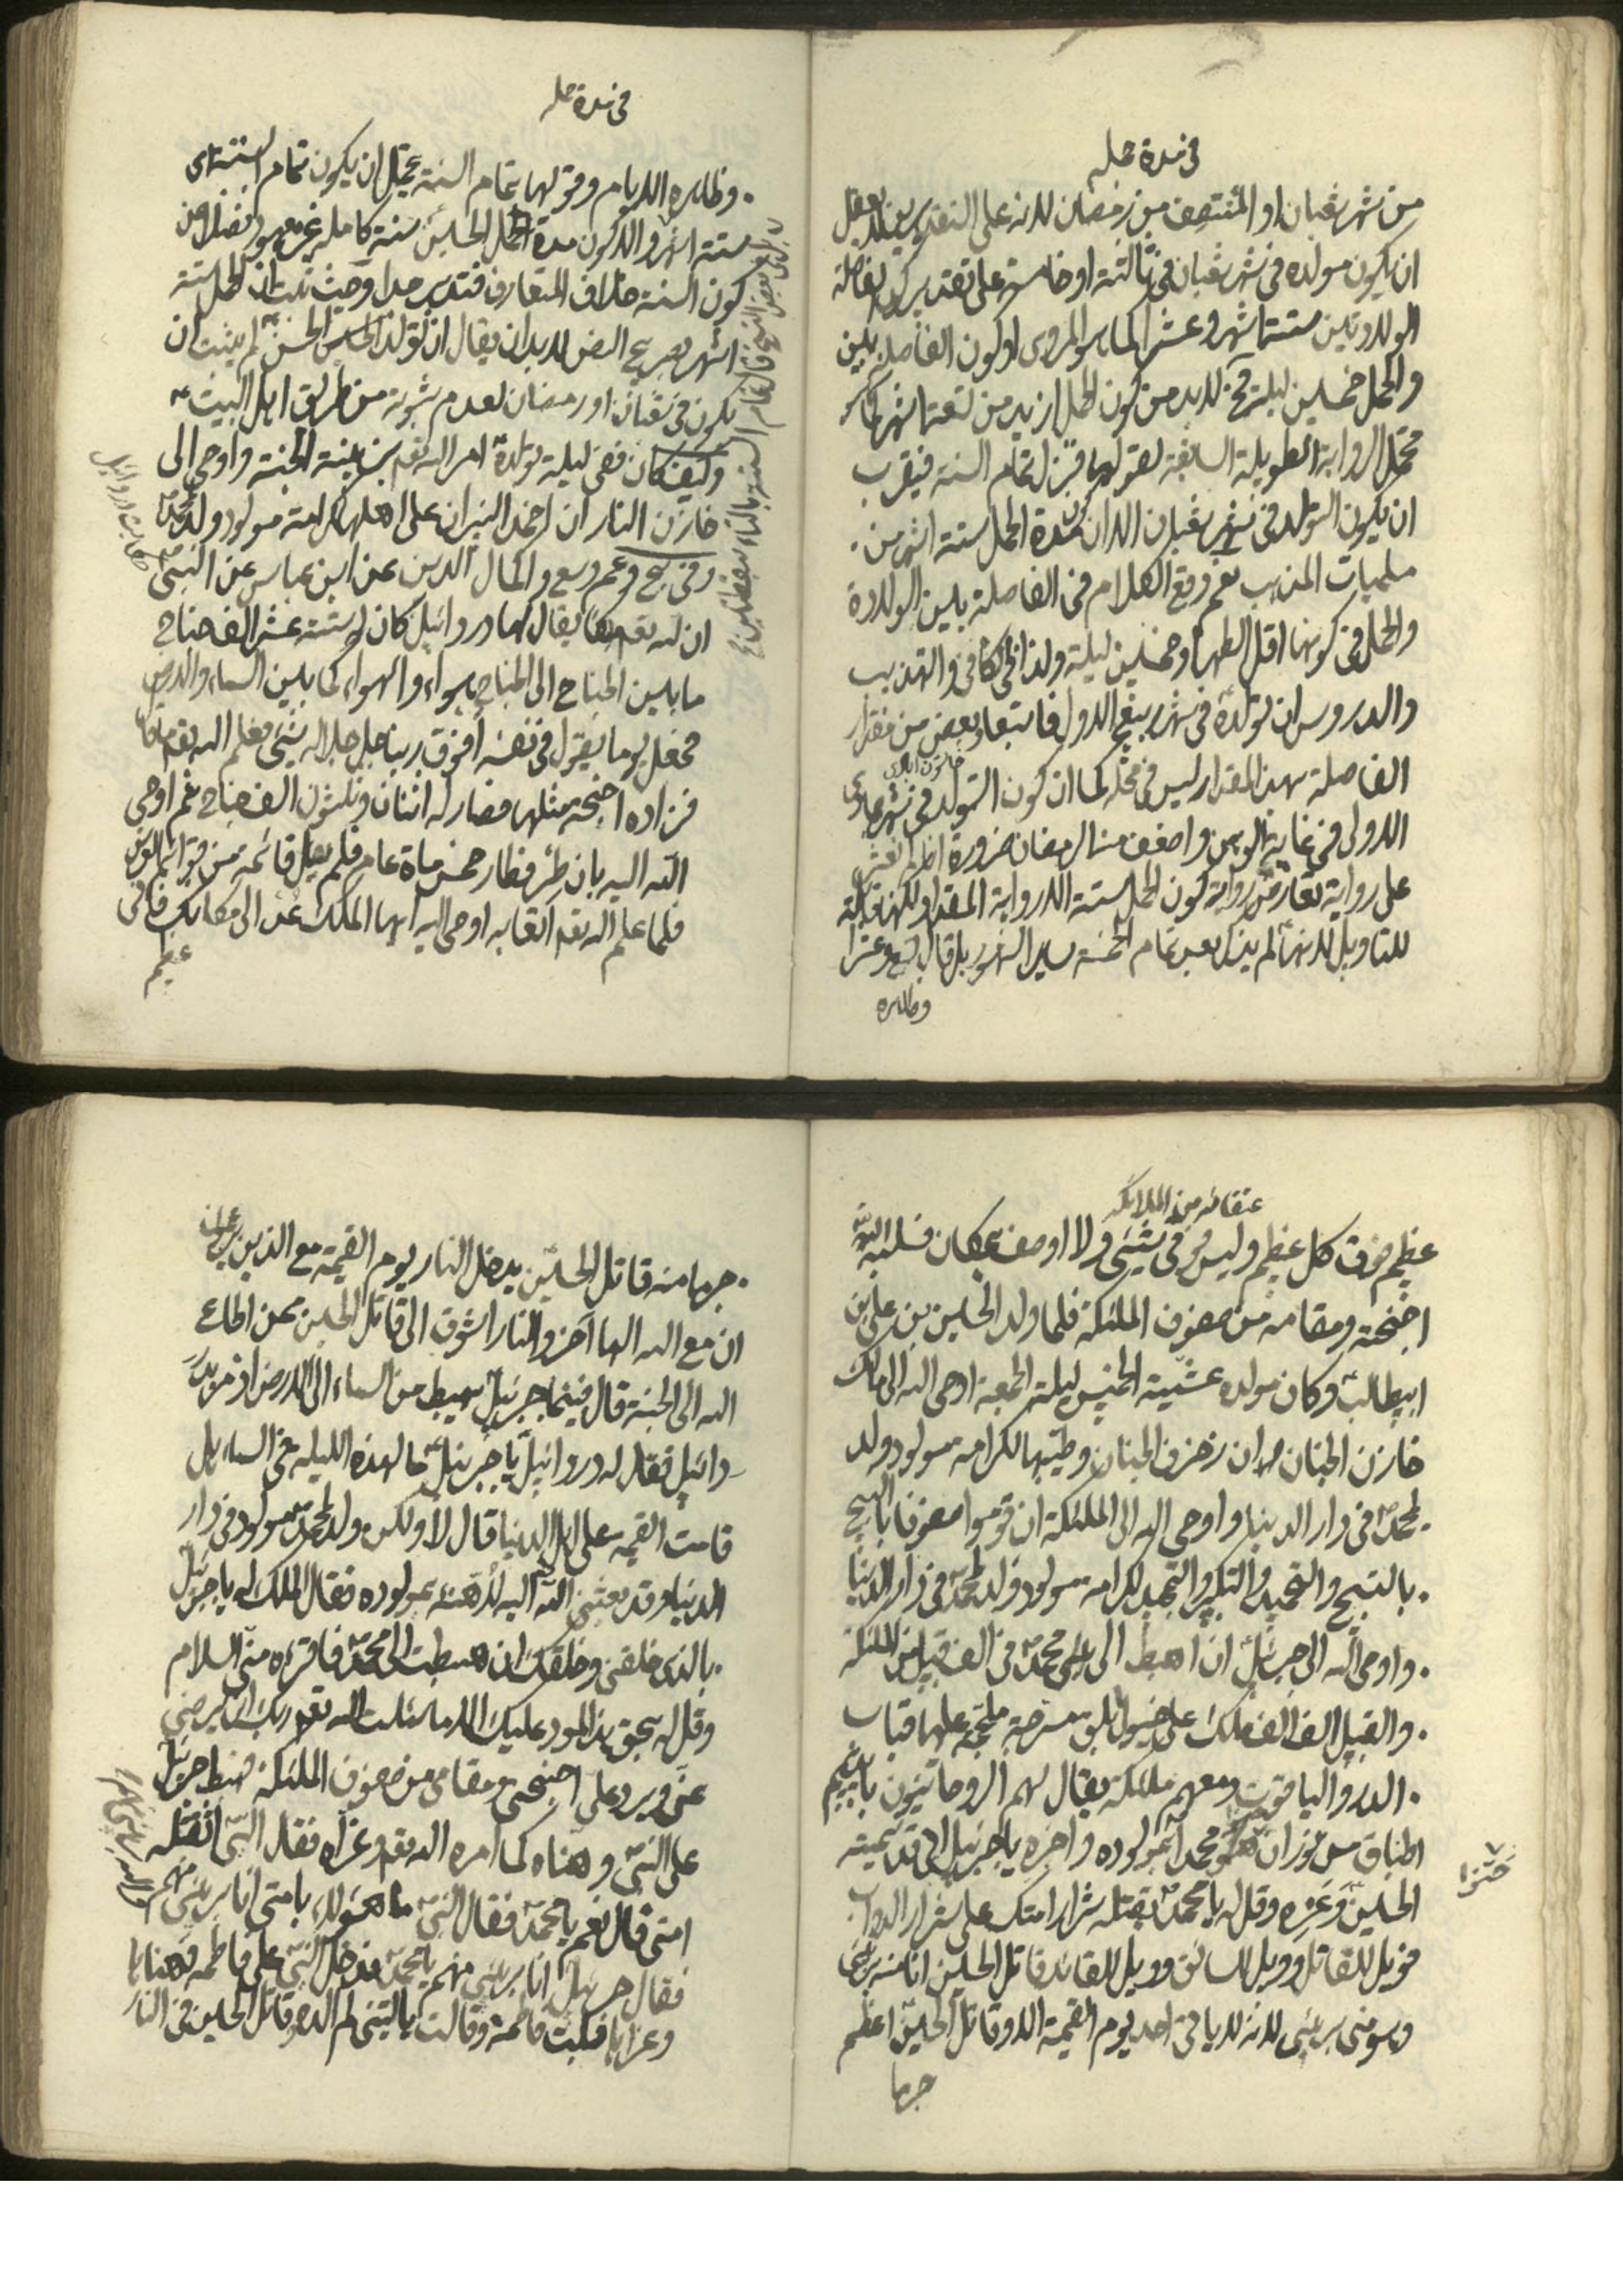 في مدة حمله
من شهر شعبان او المنتصف من رمضان لانه على التقديرين
ان يكون مولده في شهر شعبان في ثالثه او خامسه على تقدير كون الفاصلة
الولادتين ستة اشهر وعشرا كما هو المروى او كون الفاصلة بين
والحمل خمسين ليلة فح لابد من كون الحمل ازيد من تسعة اشهر كما هو
محتمل الرواية الطويلة السابقة لقولها فنزل تمام السنة فيقرب
ان يكون التولد في شهر شعبان الا ان كون مدة الحمل ستة اشهر من
المذهب نعم وقع الكلام في الفاصلة بين الولادة
والحمل في كونها اقل الطهر او خمسين ليلة ولذا في الكافي والتهذيب
والدروس ان تولده في شهر ربيع الاول من مقدار
الفاصلة بهذا المقدار ليس في محله كما ان كون التولد في شهر جمادى
الاولى في غاية الوهن واضعف من الرمضان ضرورة
على رواية كون الحمل ستة الا رواية المقدار لكنها قابلة
للتاويل لانها لم يذكر بعد تمام الخمسة الشهور بل قال وعشرا
وظاهره
في مدة حمله
وظاهره الايام وقولها تمام السنة يحتمل ان يكون تمام الستة اى
ستة اشهر والا كون مدة الحمل الحسين سنة كاملة غير معهود فضلا من
كون السنة خلاف المتعارف فتدبر جدا وحيث ثبت ان الحمل ستة
اشهر بصريح النص لابد ان يقال ان تولد الحسين لم يثبت ان
يكون في شعبان او رمضان لعدم ثبوته من طريق اهل البيت
وكيف كان ففى ليلة تولده امر الله تعم بزينة الجنة واوحى الى
خازن النار ان اخمد النيران على اهلها لكرامة مولود ولد لمحمد
وفي والكمال الدين عن ابن عباس عن النبي
ان لله تعم ملكا يقال لها دردائيل كان له ستة عشر الف جناح
ما بين الجناح الى الجناح هواء والهواء كما بين السماء والارض
فجعل يوما يقول في نفسه أفوق ربنا جل جلاله شيئ فعلم الله تعم ما قال
فزاده اجنحة مثلها فصار له اثنان وثلثون الف جناح ثم اوحى
الله اليه بان طر فطار خمس ماة عام فلم ينل قائمة من قوائم العرش
فلما علم الله تعم اتعابه اوحى اليه ايها الملك عد الى مكانك فانى
عظيم
بعض النسخ قال تمام الستة بالتاء بنقطتين
حكايت دردائيل
عتقائه من الملائكه
عظيم فوق كل عظيم وليس فوقى شيئ ولا اوصف بمكان فسلبه الله
اجنحته ومقامه من صفوف الملئكة فلما ولد الحسين بن على بن
ابيطالب وكان مولده عشية الخميس ليلة الجمعة اوحى الله الى مالك
خازن الجنان ان زخرف الجنان وطيبها لكرامة مولود ولد
لمحمد في دار الدنيا واوحى الله الى الملئكة ان قوموا صفوفا
بالتسبيح والتحميد والتكبير والتمجيد لكرامة مولود ولد لمحمد في دار الدنيا
واوحى الله الى جبرئيل ان اهبط الى نبيي محمد في الف قبيل من الملئكة
والقبيل الف الف ملك على خيول بلق مسرجة ملجمة عليها قباب
الدر والياقوت ومعهم ملائكة يقال لهم الروحانيون بايديهم
اطباق من نور ان هنئوا محمدا بمولوده واخبره يا جبرئيل انى قد سميته
الحسين وعزه وقل له يا محمد يقتله شرار امتك على شرار الدواب
فويل للقاتل وويل للسائق وويل للقائد قاتل الحسين انا منه برئ
وهو منى برئ لانه لا ياتى احد يوم القيمة الا وقاتل الحسين اعظم
جرما
جرما منه قاتل الحسين يدخل النار يوم القيمة مع الذين يزعمون
ان مع الله الها آخر والنار اشوق الى قاتل الحسين ممن اطاع
الله الى الجنة قال فبينما جبرئيل يهبط من السماء الى الارض اذ مر بدر
دائيل فقال له دردائيل يا جبرئيل ما هذه الليلة في السماء هل
قامت القيمة على اهل الدنيا قال لا ولكن ولد لمحمد مولود في دار
الدنيا وقد بعثني الله اليه لأهنئه بمولوده فقال الملك له يا جبرئيل
بالذى خلقنى وخلقك ان هبطت الى محمد فاقرءه منى السلام
وقل له بحق هذا المولود عليك الا ما سئلت الله تعم ربك ان يرضى
عنى ويرد على اجنحتى ومقامى من صفوف الملئكة فهبط جبرئيل
على النبي وهناه كما امره الله تعم وعزاه فقال النبي أتقتله
امتى قال نعم يا محمد فقال النبي ما هؤلاء بامتى انا برئ منهم والله برئ منهم
فقال جبرئيل انا برئ منهم يا محمد فدخل النبي على فاطمة فهناها
وعزاها فبكت فاطمة وقالت يا ليتني لم الده وقاتل الحسين في النار